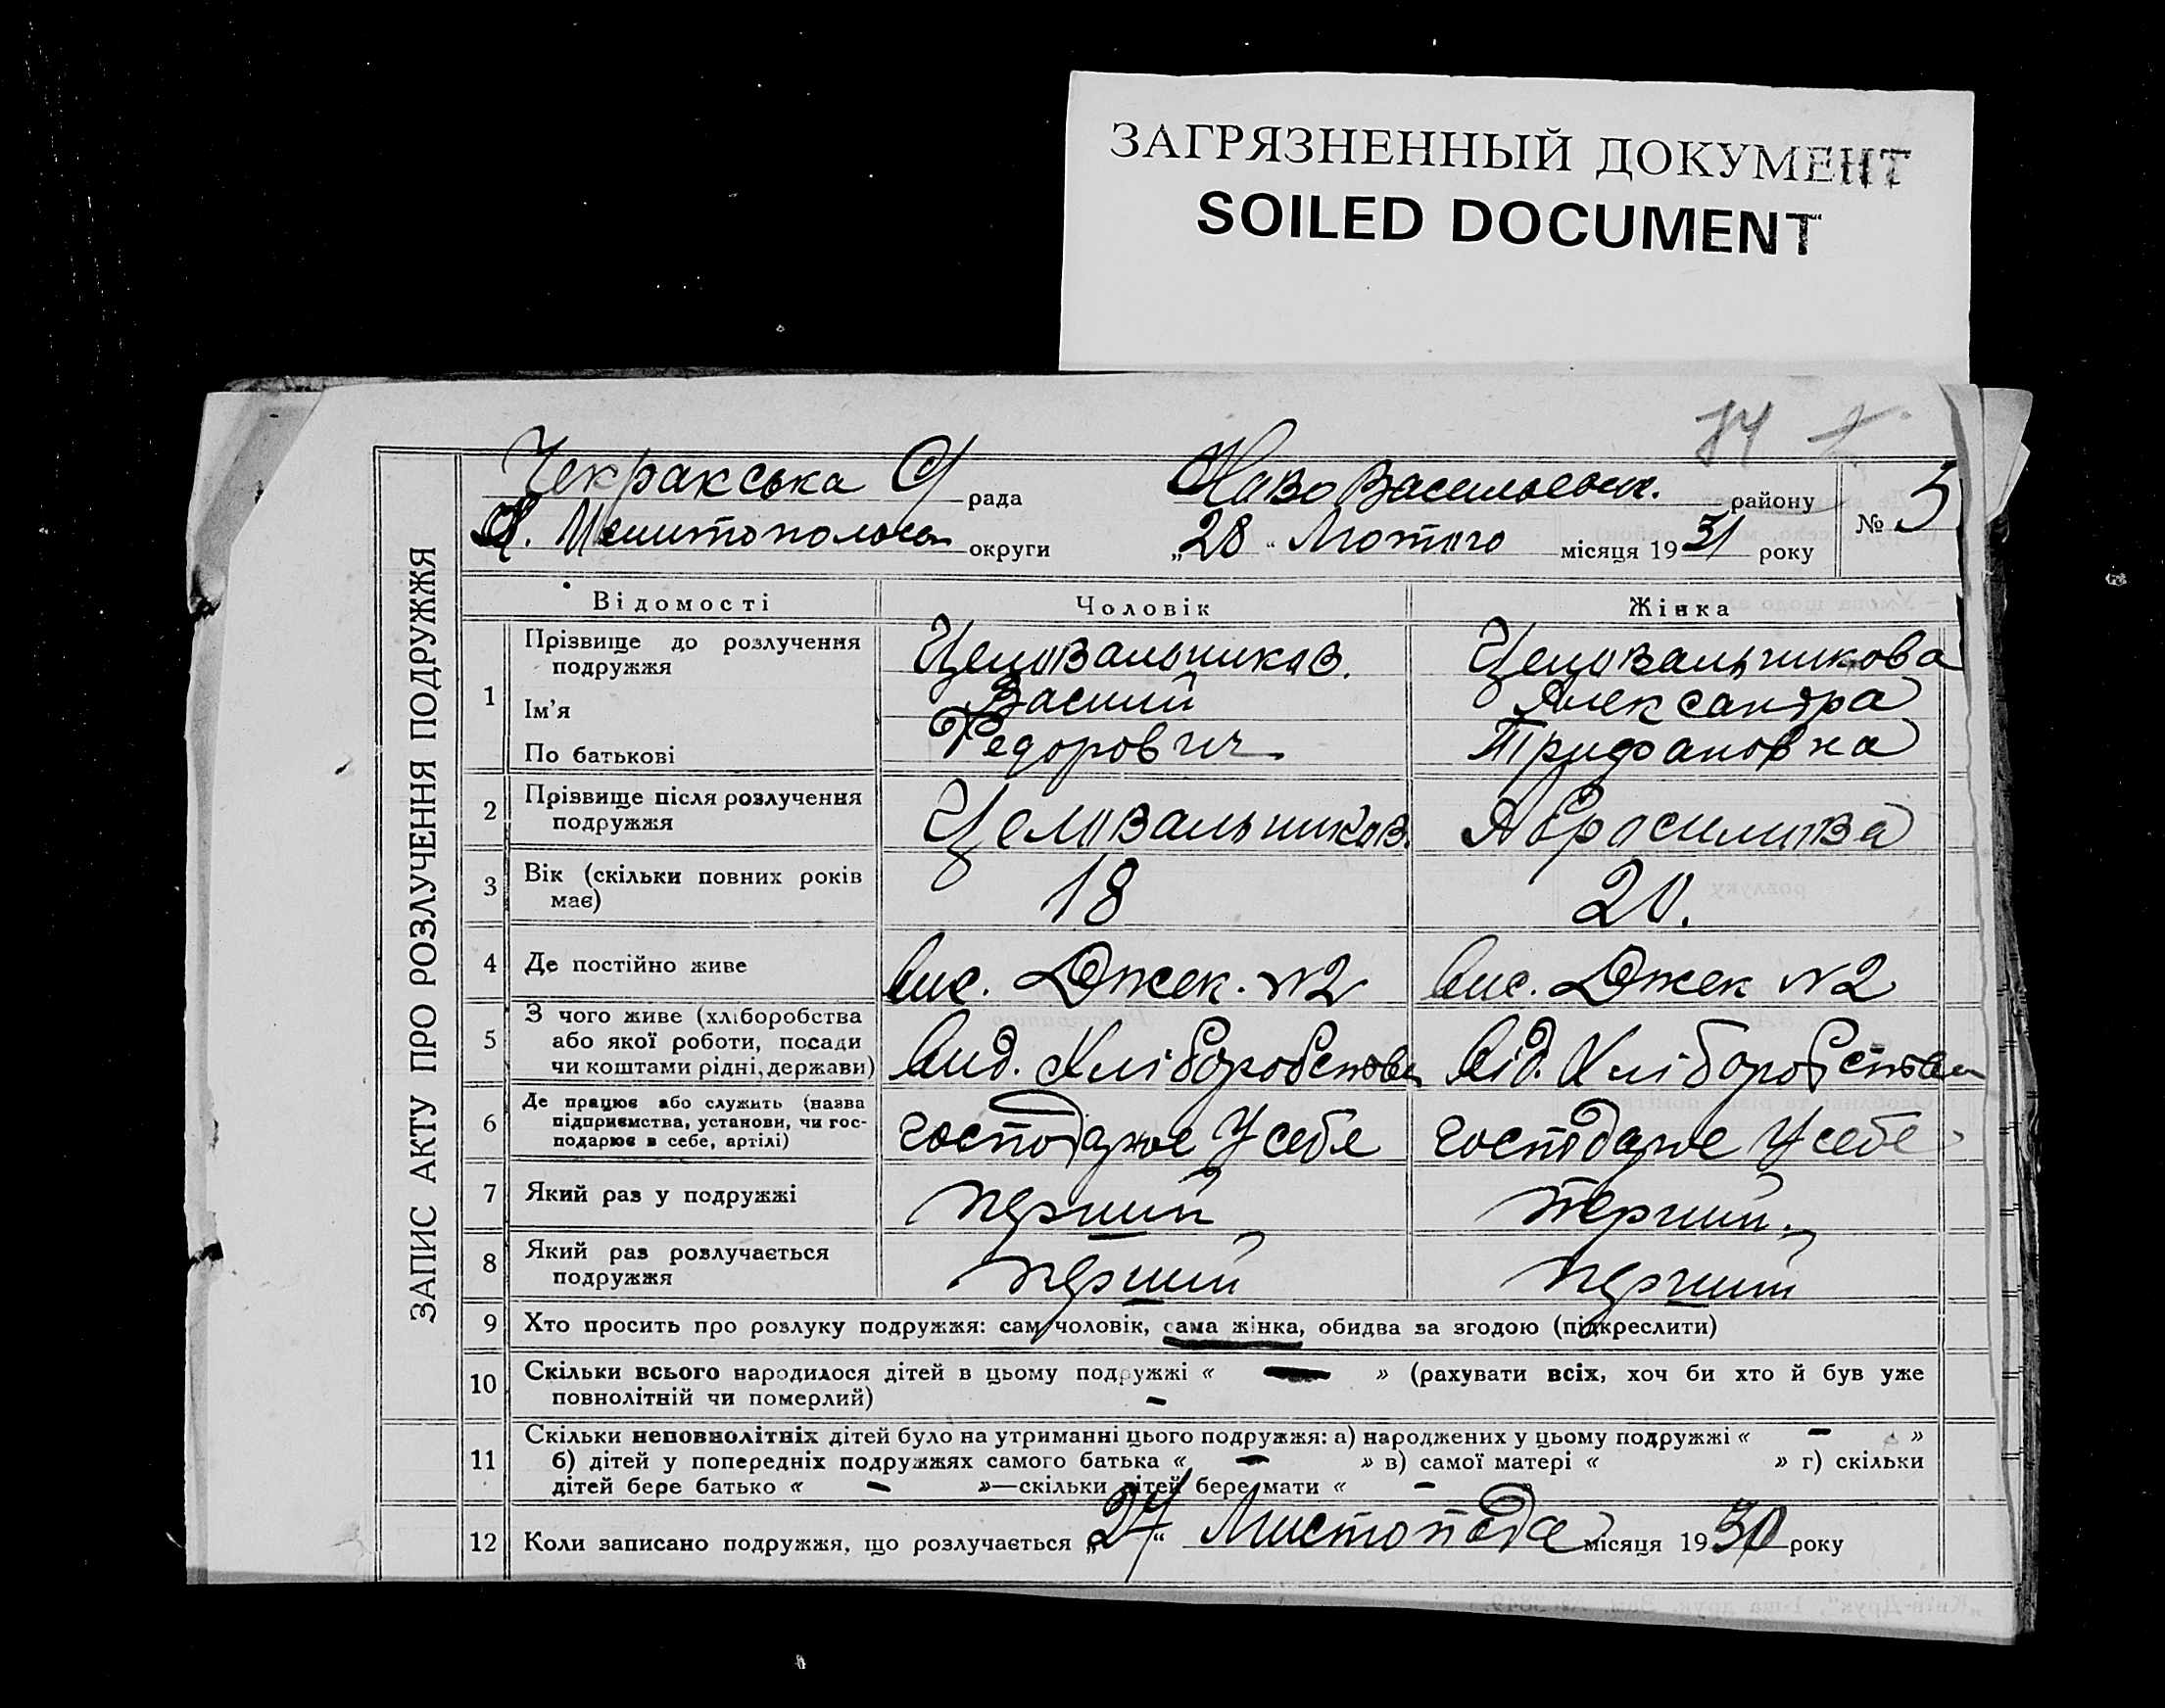 ЗАГРЯЗНЕННЫЙ ДОКУМЕНТ
SOILED DOCUMENT
ЗАПИС АКТУ ПРО РОЗЛУЧЕННЯ ПОДРУЖЖЯ
Чекракська С/ рада Ново Васильевск. району № 5
округи „28“ Лютого місяця 1931 року
Відомості Чоловік Жінка
1 Прізвище до розлучення подружжя Целовальников. Целовальникова
Ім'я Василий Александра
По батькові Федорович Трифановна
2 Прізвище після розлучення подружжя Целовальников. Абросимова
3 Вік (скільки повних років має) 18 20.
4 Де постійно живе Вис. Джек. №2 Вис. Джек №2
5 З чого живе (хліборобства або якої роботи, посади чи коштами рідні, держави) Вид. Хліборобства Від. Хліборобства
6 Де працює або служить (назва підприємства, установи, чи господарює в себе, артілі) господарює У себе господарює У себе
7 Який раз у подружжі перший перший.
8 Який раз розлучається подружжя перший перший
9 Хто просить про розлуку подружжя: сам чоловік, сама жінка, обидва за згодою (підкреслити)
10 Скільки всього народилося дітей в цьому подружжі « — » (рахувати всіх, хоч би хто й був уже
повнолітній чи померлий) —
11 Скільки неповнолітніх дітей було на утриманні цього подружжя: а) народжених у цьому подружжі « — »
б) дітей у попередніх подружжях самого батька « — » в) самої матері « » г) скільки
дітей бере батько « — »—скільки дітей бере мати « — »
12 Коли записано подружжя, що розлучається „27“ Листопада місяця 1930 року